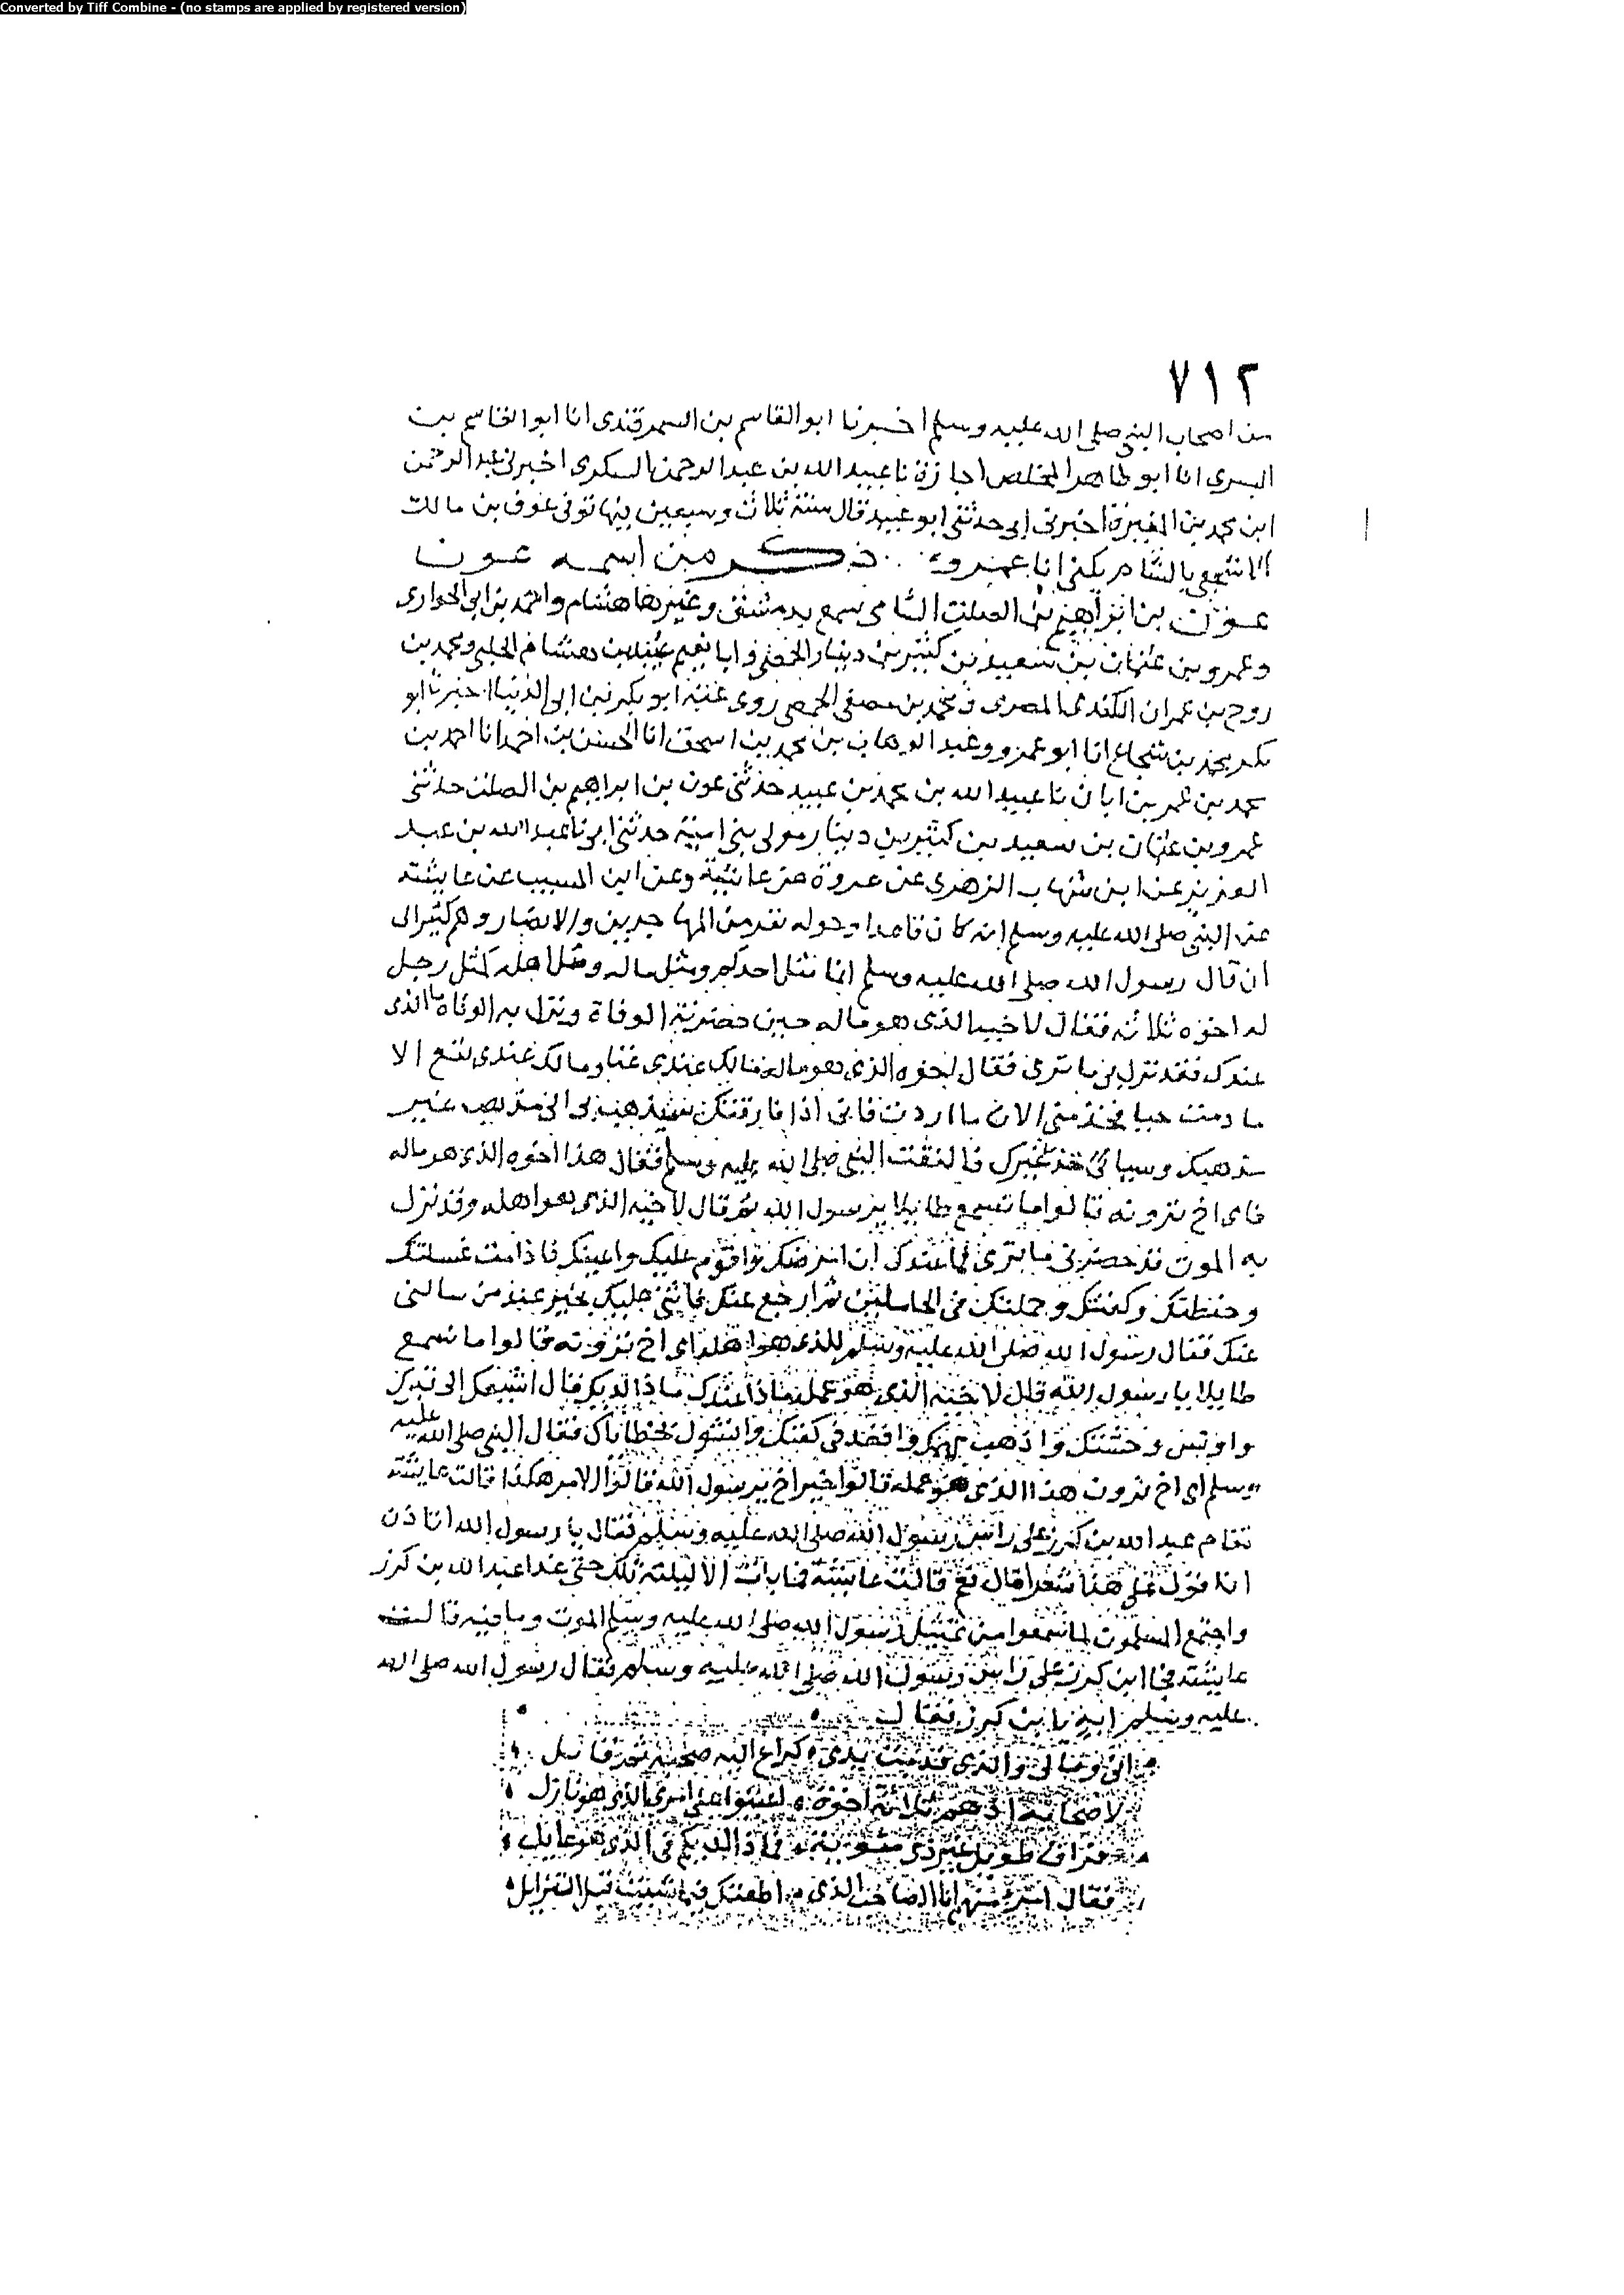 Converted by Tiff Combine - (no stamps are applied by registered version)
٧١٢
من اصحاب النبي صلى الله عليه وسلم اخبرنا ابو القاسم بن السمرقندى انا ابو القاسم بن
البسرى انا ابو طاهر المخلص اجازة نا عبيد الله بن عبد الرحمن السكرى اخبرنى عبد الرحمن
ابن محمد بن المغيرة اخبرنى ابى حدثنى ابو عبيد قال سنة ثلاث وسبعين فيها توفى عوف بن مالك
الاشجعى بالشام يكنى ابا عمرو ذكر من اسمه عون
عون بن ابراهيم بن الصلت الشامى سمع بدمشق وغيرها هشام واحمد بن ابى الحوارى
وعمرو بن عثمان بن سعيد بن كثير بن دينار الحمصى وابا نعيم عبيد بن هشام الحلبى ومحمد بن
روح بن عمران الكندى المصرى ومحمد بن مصفى الحمصى روى عنه ابو بكر بن ابى الدنيا اخبرنا ابو
بكر محمد بن شجاع انا ابو عمرو وعبد الوهاب بن محمد بن اسحق انا الحسن بن احمد انا احمد بن
محمد بن عمر بن ابان نا عبيد الله بن محمد بن عبيد حدثنى عون بن ابراهيم بن الصلت حدثنى
عمرو بن عثمان بن سعيد بن كثير بن دينار مولى بنى امية حدثنى ابى نا عبد الله بن عبد
العزيز عن ابن شهاب الزهرى عن عروة عن عائشة وعن ابن المسيب عن عايشة
عن النبى صلى الله عليه وسلم انه كان قاعدا وحوله نفر من المهاجرين والانصار وهم كثير الى
ان قال رسول الله صلى الله عليه وسلم انما مثل احدكم ومثل ماله ومثل اهله كمثل رجل
له اخوه ثلاثه فقال لاخيه الذى هو ماله حين حضرته الوفاة ونزل به الوفاة ما الذى
عندك فقد نزل بى ما ترى فقال اخوه الذى هو ماله مالك عندى غنا ومالك عندى نفع الا
ما دمت حيا فخذ منى الان ما اردت فانى اذا فارقتك سيذهب بى الى مذهب غير
مذهبك وسياخذنى غيرك فالتفت النبى صلى الله عليه وسلم فقال هذا اخوه الذى هو ماله
فاى اخ ترونه قالوا ما نسمع طايلا يرسول الله ثم قال لاخيه الذى هو اهله وقد نزل
به الموت قد حضر بى ما ترى فما عندك ان امرضك واقوم عليك واعينك فاذا مت غسلتك
وحنطتك وكفنتك وحملتك فى الحاملين ثم ارجع عنك فاثنى عليك بخير عند من سالنى
عنك فقال رسول الله صلى الله عليه وسلم للذى هو اهله اى اخ ترونه قالوا ما نسمع
طايلا يا رسول الله قال لاخيه الذى هو عمله ماذا عندك ماذا لديك قال اشيعك الى قبرك
واونس وحشتك واذهب بهمك واقعد فى كفنك واشول بخطاياك فقال النبى صلى الله عليه
وسلم اى اخ ترون هذا الذى هو عمله قالوا خير اخ يرسول الله قال الامر هكذا قالت عايشة
فقام عبد الله بن كرز على راس رسول الله صلى الله عليه وسلم فقال يا رسول الله اتاذن
ان اقول على هذا شعرا قال نعم قالت عايشة فما بات الا ليلته تلك حتى غدا عبد الله بن كرز
واجتمع المسلمون لما سمعوا من تمثيل رسول الله صلى الله عليه وسلم الموت وما فيه قالت
عايشة فجا ابن كرز على راس رسول الله صلى الله عليه وسلم فقال رسول الله صلى الله
عليه وسلم ايه يا بن كرز فقال
انى ومالى والذى قدمت يدى كداع اليه صحبه ثم قايل
لاصحابه اذ هم ثلاثة اخوة اعينوا على امرى الذى هو نازل
فراق طويل غير ذى مثنوية فماذا لديكم فى الذى هو غايل
فقال امرؤ منهم انا الصاحب الذى اطعتك فيما شيت قبل التزايل